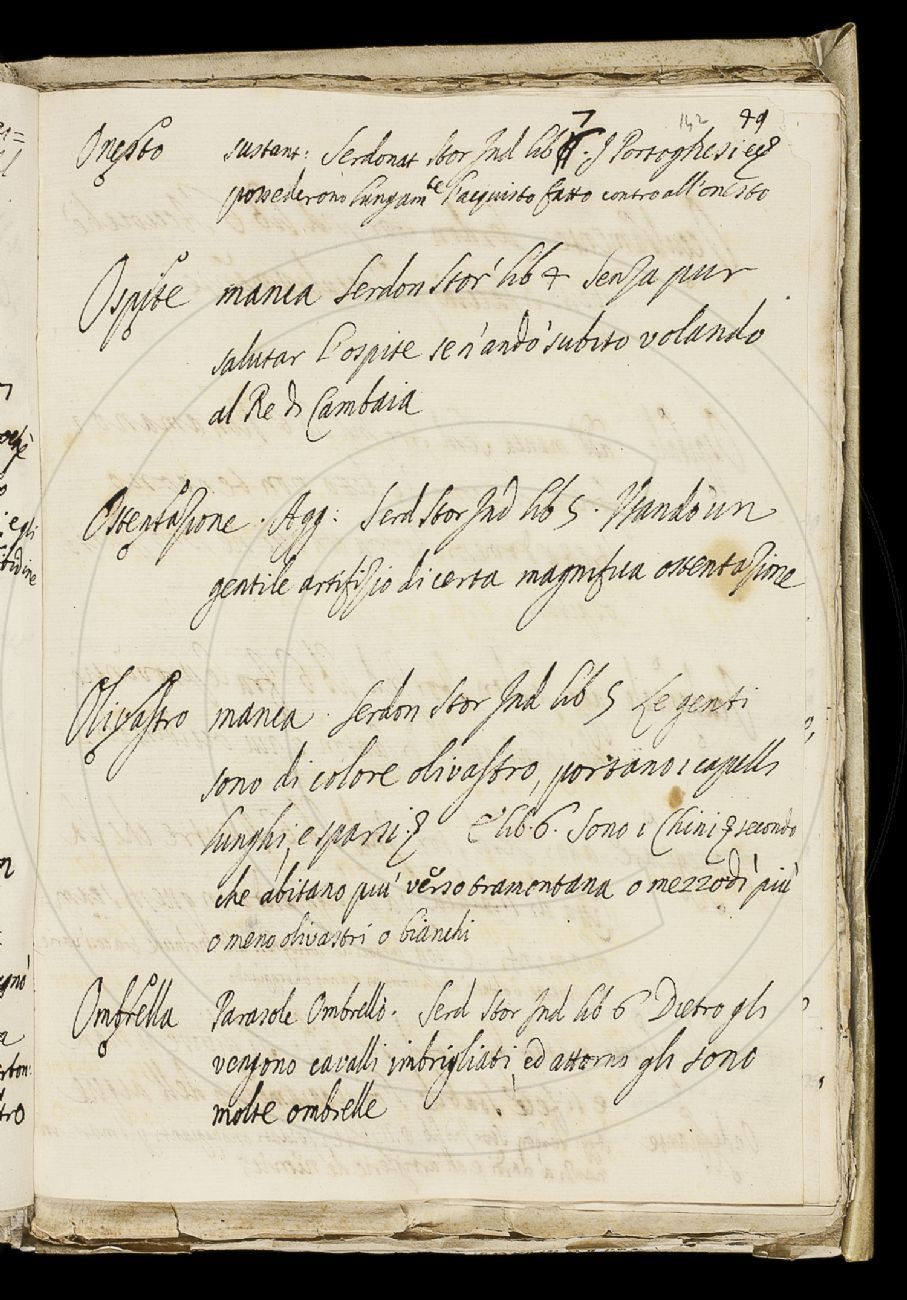 142 49
Onesto sustant: Serdonat Stor Ind lib 7. I Portoghesi ec
possederono lungamte l'acquisto fatto contro all'onesto
Ospite manca Serdon Stor lib 4 Senza pur
salutar l'ospite se n'andò subito volando
al Re di Cambaia
Ostentazione. Agg: Serd Stor Ind lib 5. Mandò un
gentile artifizio di certa magnifica ostentazione
Olivastro manca. Serdon Stor Ind lib 5 Le genti
sono di colore olivastro, portano i capelli
lunghi, e sparsi. E lib. 6. Sono i Chini secondo
che abitano più verso tramontana o mezzodì più
o meno olivastri o bianchi
Ombrella Parasole Ombrello. Serd Stor Ind lib 6 Dietro gli
vengono cavalli imbrigliati, ed attorno gli sono
molte ombrelle